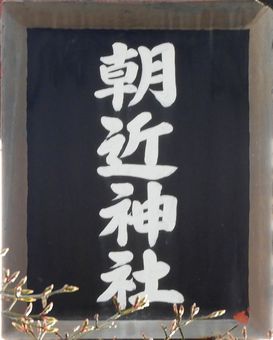 朝近神社